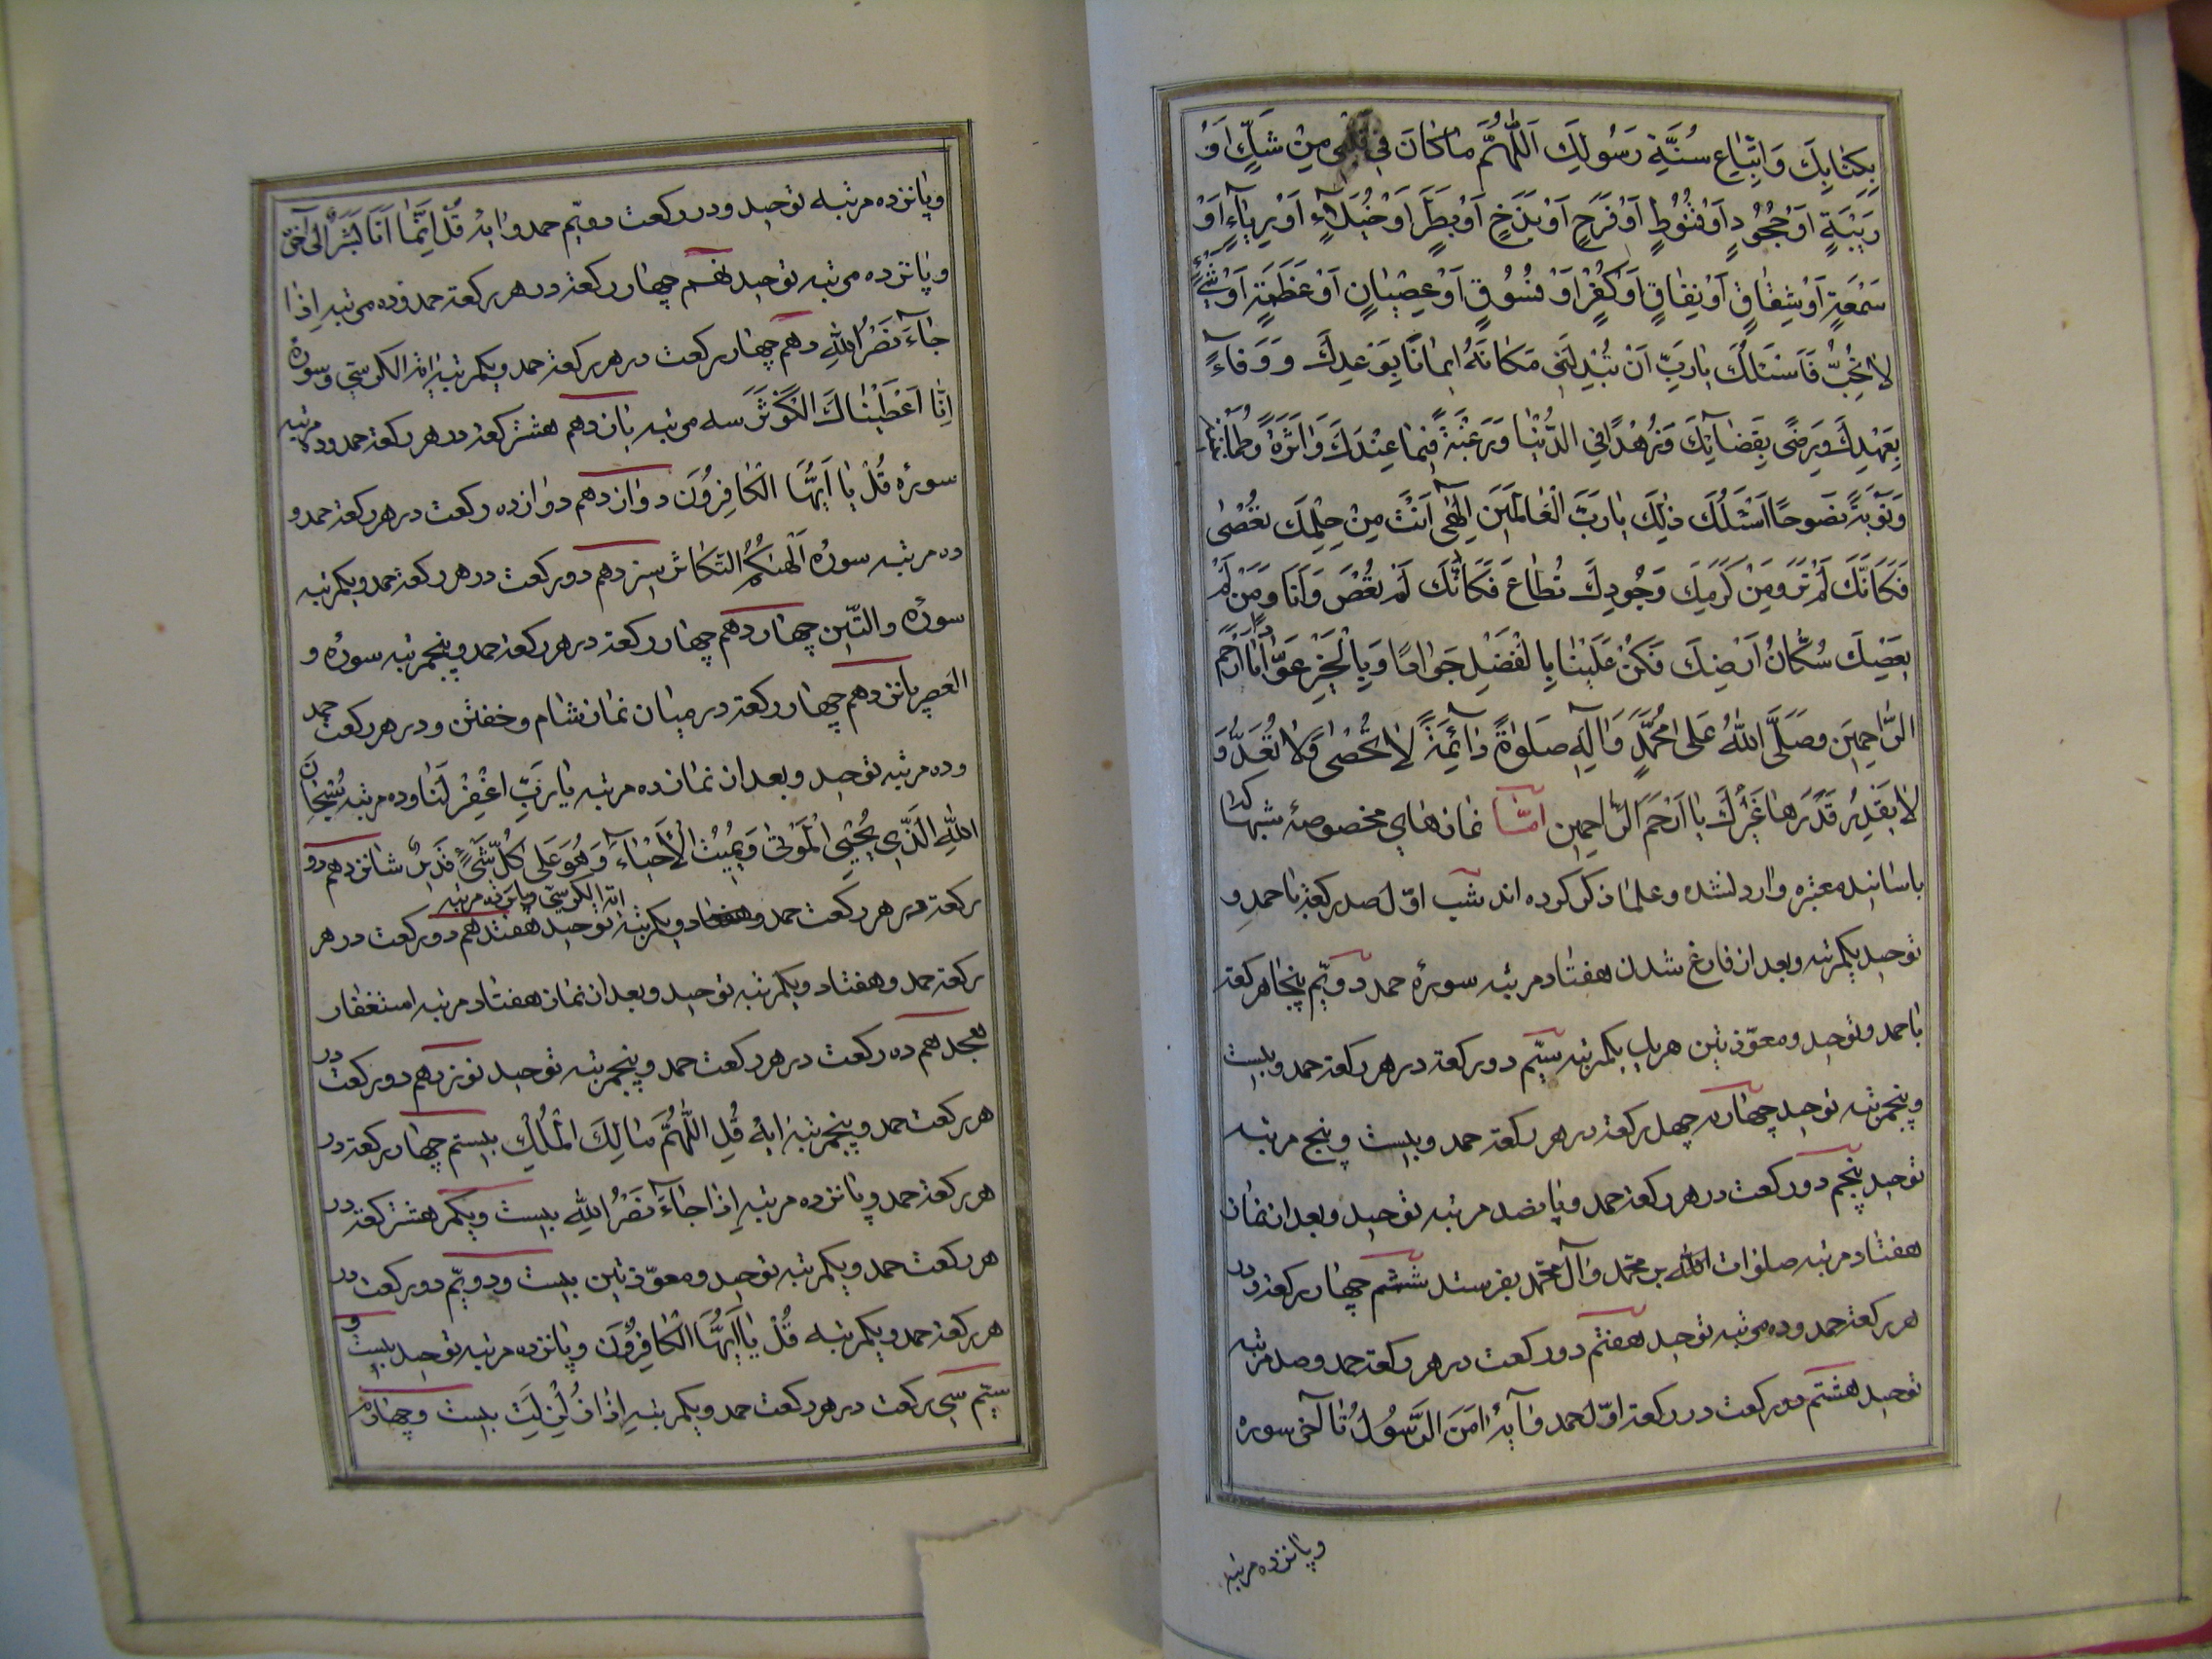 بِكِتَابِكَ وَاتِّبَاعِ سُنَّةِ رَسُولِكَ اَللّٰهُمَّ مَا كَانَ فِي قَلْبِي مِنْ شَكٍّ اَوْ
رَيْبَةٍ اَوْ جُحُودٍ اَوْ قُنُوطٍ اَوْ فَرَحٍ اَوْ بَذَخٍ اَوْ بَطَرٍ اَوْ خُيَلَاءٍ اَوْ رِيَاءٍ اَوْ
سُمْعَةٍ اَوْ شِقَاقٍ اَوْ نِفَاقٍ اَوْ كُفْرٍ اَوْ فُسُوقٍ اَوْ عِصْيَانٍ اَوْ عَظَمَةٍ اَوْ شَيْءٍ
لَا تُحِبُّ فَاَسْئَلُكَ يَا رَبِّ اَنْ تُبْدِلَنِي مَكَانَهُ اِيمَانًا بِوَعْدِكَ وَ وَفَاءً
بِعَهْدِكَ وَ رِضًى بِقَضَائِكَ وَ زُهْدًا فِي الدُّنْيَا وَ رَغْبَةً فِيمَا عِنْدَكَ وَ اَثَرَةً وَ طُمَأْنِينَةً
وَ تَوْبَةً نَصُوحًا اَسْئَلُكَ ذٰلِكَ يَا رَبَّ الْعَالَمِينَ اِلٰهِي اَنْتَ مِنْ حِلْمِكَ تُعْصٰى
فَكَاَنَّكَ لَمْ تَرَ وَ مِنْ كَرَمِكَ وَ جُودِكَ تُطَاعُ فَكَاَنَّكَ لَمْ تُعْصَ وَ اَنَا وَ مَنْ لَمْ
يَعْصِكَ سُكَّانُ اَرْضِكَ فَكُنْ عَلَيْنَا بِالْفَضْلِ جَوَادًا وَ بِالْخَيْرِ عَوَّادًا يَا اَرْحَمَ
الرَّاحِمِينَ وَ صَلَّى اللّٰهُ عَلٰى مُحَمَّدٍ وَ آلِهِ صَلٰوةً دَائِمَةً لَا تُحْصٰى وَ لَا تُعَدُّ وَ
لَا يَقْدِرُ قَدْرَهَا غَيْرُكَ يَا اَرْحَمَ الرَّاحِمِينَ امّا نمازهاى مخصوصهٔ شبها كه
باسانيد معتبره وارد نشده و علما ذكر كرده اند شب اوّل صد ركعت با حمد و
توحيد يكمرتبه و بعد از فارغ شدن هفتاد مرتبه سورهٔ حمد دويّم پنجاه ركعت
با حمد و توحيد و معوّذتين هر يك يكمرتبه سيّم دو ركعت در هر ركعت حمد و بيست
و پنجمرتبه توحيد چهارم چهل ركعت در هر ركعت حمد و بيست و پنج مرتبه
توحيد پنجم دو ركعت در هر ركعت حمد و پانصد مرتبه توحيد و بعد از نماز
هفتاد مرتبه صلوات الله بر محمّد و آل محمّد بفرستد ششم چهار ركعت و در
هر ركعت حمد و ده مرتبه توحيد هفتم دو ركعت در هر ركعت حمد و صد مرتبه
توحيد هشتم دو ركعت در ركعت اوّل حمد و آيهٔ اٰمَنَ الرَّسُولُ تا آخر سوره
و پانزده مرتبه
و پانزده مرتبه توحيد و در ركعت دويّم حمد و آيهٔ قُلْ اِنَّمَا اَنَا بَشَرٌ الى آخر
و پانزده مرتبه توحيد نهم چهار ركعت در هر ركعت حمد و ده مرتبه اِذَا
جَاءَ نَصْرُ اللهِ دهم چهار ركعت در هر ركعت حمد و يكمرتبه اية الكرسى و سوره
اِنَّا اَعْطَيْنَاكَ الْكَوْثَرَ سه مرتبه يازدهم هشت ركعت در هر ركعت حمد و ده مرتبه
سورهٔ قُلْ يَا اَيُّهَا الْكَافِرُونَ دوازدهم دوازده ركعت در هر ركعت حمد و
ده مرتبه سورهٔ اَلْهٰيكُمُ التَّكَاثُر سيزدهم دو ركعت در هر ركعت حمد و يكمرتبه
سورهٔ والتّين چهاردهم چهار ركعت در هر ركعت حمد و پنجمرتبه سورهٔ و
العصر پانزدهم چهار ركعت در ميان نماز شام و خفتن و در هر ركعت حمد
و ده مرتبه توحيد و بعد از نماز ده مرتبه يَا رَبِّ اغْفِرْ لَنَا و ده مرتبه سُبْحَانَ
اللهِ الَّذِي يُحْيِي الْمَوْتٰى وَ يُمِيتُ الْاَحْيَاءَ وَ هُوَ عَلٰى كُلِّ شَيْءٍ قَدِيرٌ شانزدهم دو
اية الكرسى و پانزده مرتبه
ركعت در هر ركعت حمد و هفتاد و يكمرتبه توحيد هفتدهم دو ركعت در هر
ركعت حمد و هفتاد و يكمرتبه توحيد و بعد از نماز هفتاد مرتبه استغفار
هجدهم ده ركعت در هر ركعت حمد و پنجمرتبه توحيد نوزدهم دو ركعت در
هر ركعت حمد و پنجمرتبه ايهٔ قُلِ اللّٰهُمَّ مَالِكَ الْمُلْكِ بيستم چهار ركعت در
هر ركعت حمد و پانزده مرتبه اِذَا جَاءَ نَصْرُ اللهِ بيست و يكم هشت ركعت در
هر ركعت حمد و يكمرتبه توحيد و معوّذتين بيست و دويّم دو ركعت در
هر ركعت حمد و يكمرتبه قُلْ يَا اَيُّهَا الْكَافِرُونَ و پانزده مرتبه توحيد بيست و
سيّم سى ركعت در هر ركعت حمد و يكمرتبه اِذَا زُلْزِلَتِ بيست و چهارم